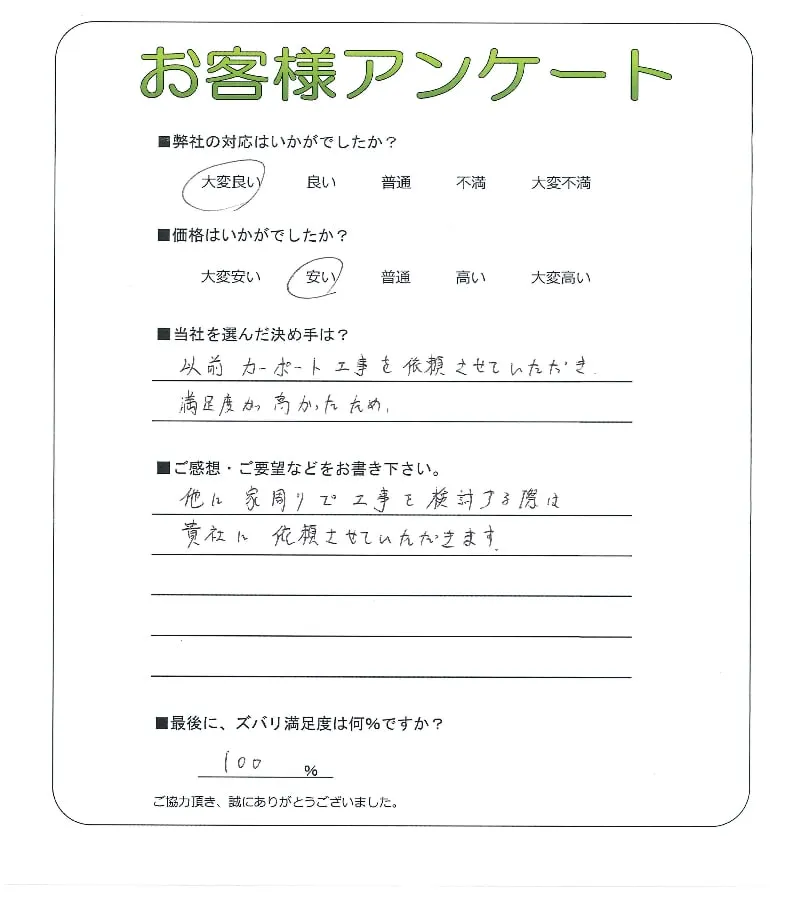 お客様アンケート
■弊社の対応はいかがでしたか？
大変良い 良い 普通 不満 大変不満
■価格はいかがでしたか？
大変安い 安い 普通 高い 大変高い
■当社を選んだ決め手は？
以前 カーポート工事を依頼させていただき.
満足度が高かったため.
■ご感想・ご要望などをお書き下さい。
他に家周りで工事を検討する際は
貴社に依頼させていただきます.
■最後に、ズバリ満足度は何%ですか？
100 %
ご協力頂き、誠にありがとうございました。